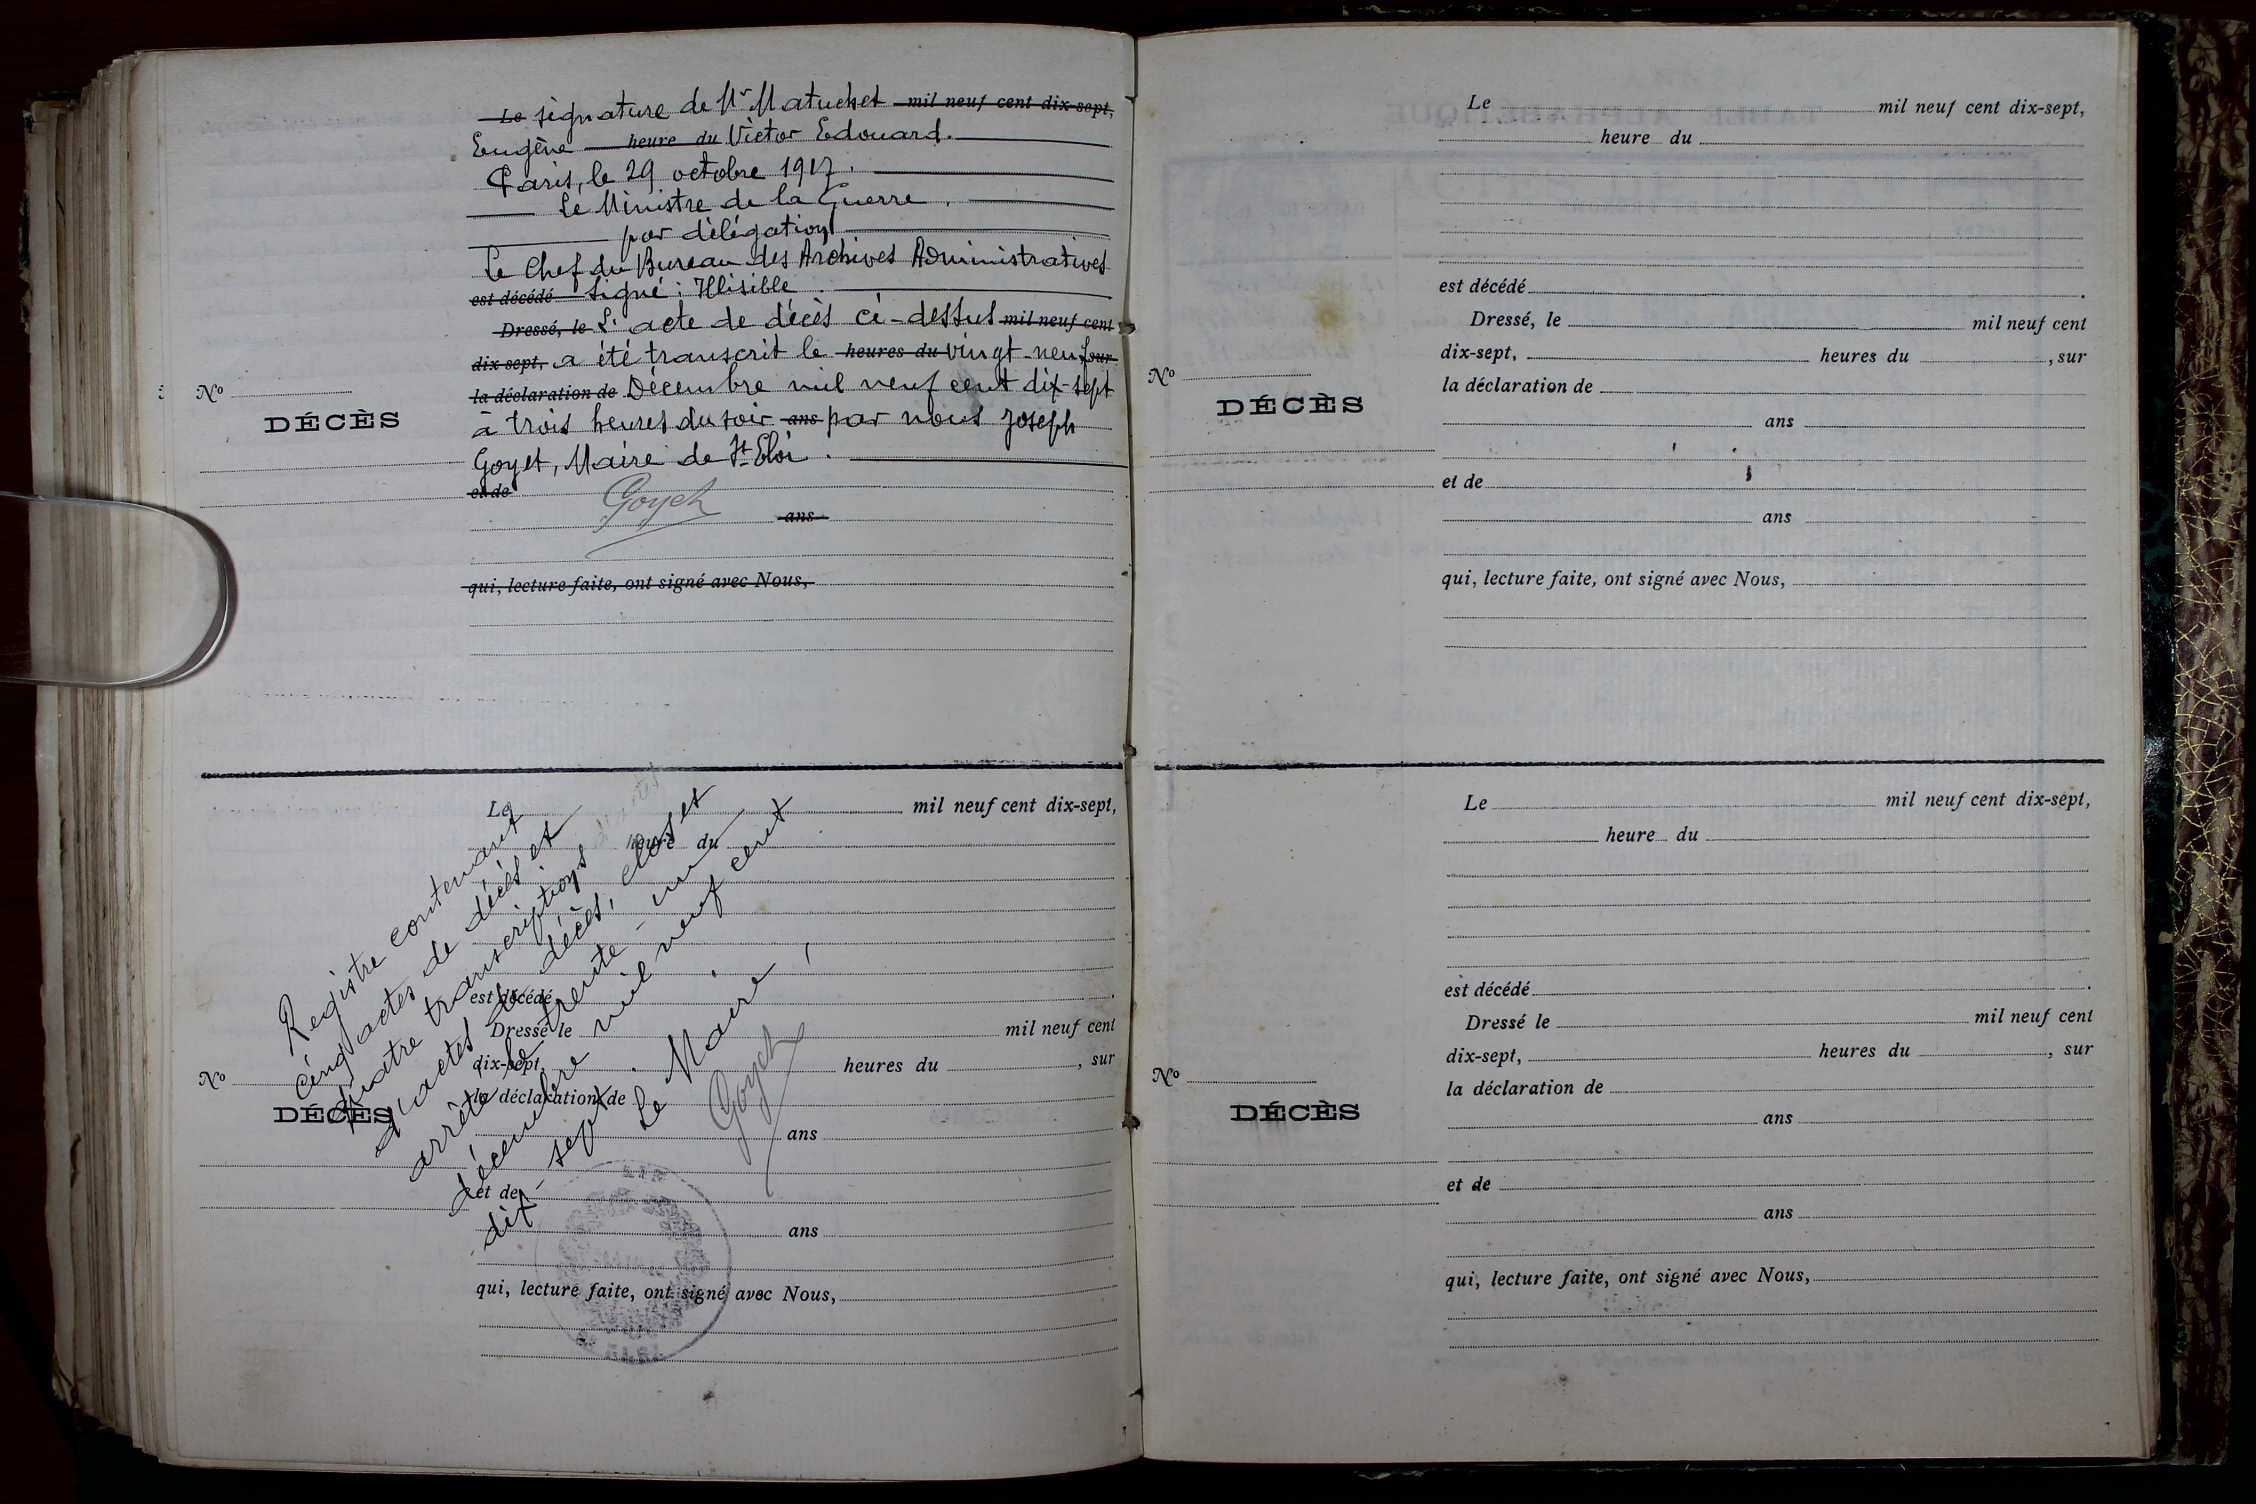 Le signature de Mr Matuchet mil neuf cent dix-sept,
Eugène heure du Victor Edouard.
Paris, le 29 octobre 1917.
Le Ministre de la Guerre,
par délégation
Le Chef du Bureau des Archives Administratives
est décédé Signé: Illisible.
Dressé, le L'acte de décès ci-dessus mil neuf cent
dix-sept, a été transcrit le heures du vingt-neuf sur
la déclaration de Décembre mil neuf cent dix-sept
à trois heures du soir ans par nous Joseph
Goyet, Maire de St Eloi.
No
DÉCÈS
et de
Goyet
ans
qui, lecture faite, ont signé avec Nous,
Le mil neuf cent dix-sept,
heure du
est décédé
Dressé le mil neuf cent
dix-sept, heures du , sur
la déclaration de
No
DÉCÈS
ans
et de
ans
qui, lecture faite, ont signé avec Nous,
Registre contenant
cinq actes de décès et
quatre transcriptions
d'actes de décès, clos et
arrêté le trente-un
décembre mil neuf cent
dix-sept.
Le Maire,
Goyet
Le mil neuf cent dix-sept,
heure du
est décédé
Dressé, le mil neuf cent
dix-sept, heures du , sur
No
la déclaration de
DÉCÈS
ans
et de
ans
qui, lecture faite, ont signé avec Nous,
Le mil neuf cent dix-sept,
heure du
est décédé
Dressé le mil neuf cent
dix-sept, heures du , sur
No
la déclaration de
DÉCÈS
ans
et de
ans
qui, lecture faite, ont signé avec Nous,